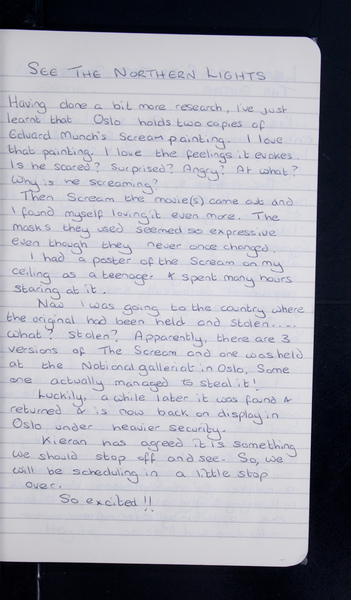 SEE THE NORTHERN LIGHTS
Having done a bit more research, I've just
learnt that Oslo holds two copies of
Edvard Munch's Scream painting. I love
that painting. I love the feelings it evokes.
Is he scared? Surprised? Angry? At what?
Why is he screaming?
Then Scream the movie(s) came out and
I found myself loving it even more. The
masks they used seemed so expressive
even though they never once changed.
I had a poster of the Scream on my
ceiling as a teenager & spent many hours
staring at it.
Now I was going to the country where
the original had been held and stolen....
What? Stolen? Apparently, there are 3
versions of The Scream and one was held
at the Nationalgalleriet in Oslo. Some
one actually managed to steal it!
Luckily, a while later it was found &
returned & is now back on display in
Oslo under heavier security.
Kieran has agreed it is something
we should stop off and see. So, we
will be scheduling in a little stop
over.
So excited!!